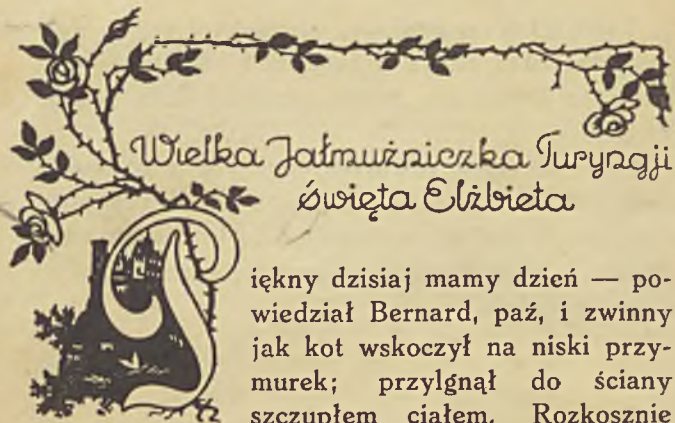 Wielka Jałmużniczka Turyngji
święta Elżbieta
Piękny dzisiaj mamy dzień — po-
wiedział Bernard, paź, i zwinny
jak kot wskoczył na niski przy-
murek; przylgnął do ściany
szczupłem ciałem. Rozkosznie